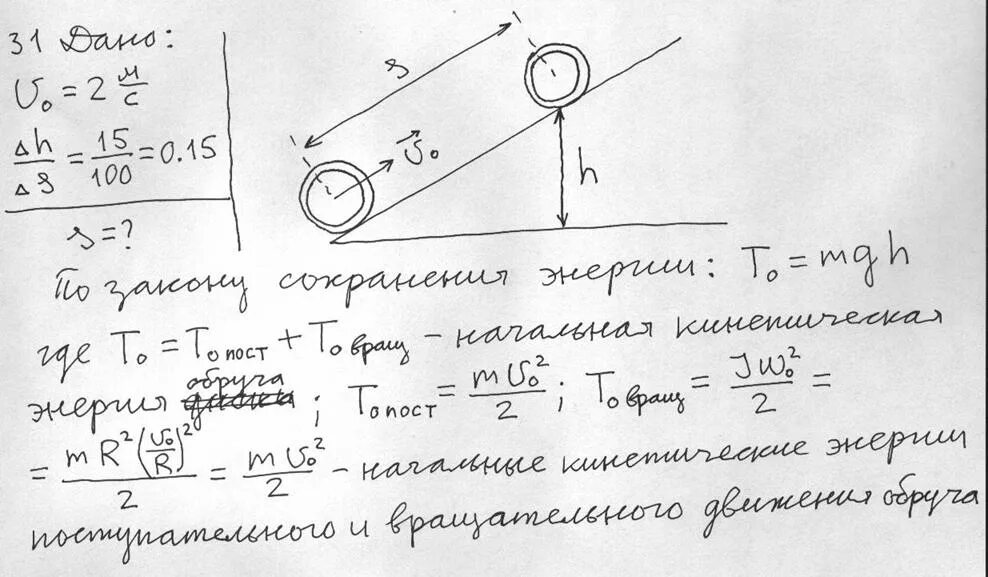 31 Дано:
υ₀ = 2 м/с
Δh/Δs = 15/100 = 0.15
s = ?
s
υ⃗₀
h
По закону сохранения энергии: T₀ = mgh
где T₀ = T₀ пост + T₀ вращ - начальная кинетическая
энергия обруча; T₀ пост = mυ₀²/2; T₀ вращ = Jω₀²/2 =
= mR²(υ₀/R)²/2 = mυ₀²/2 - начальные кинетические энергии
поступательного и вращательного движения обруча